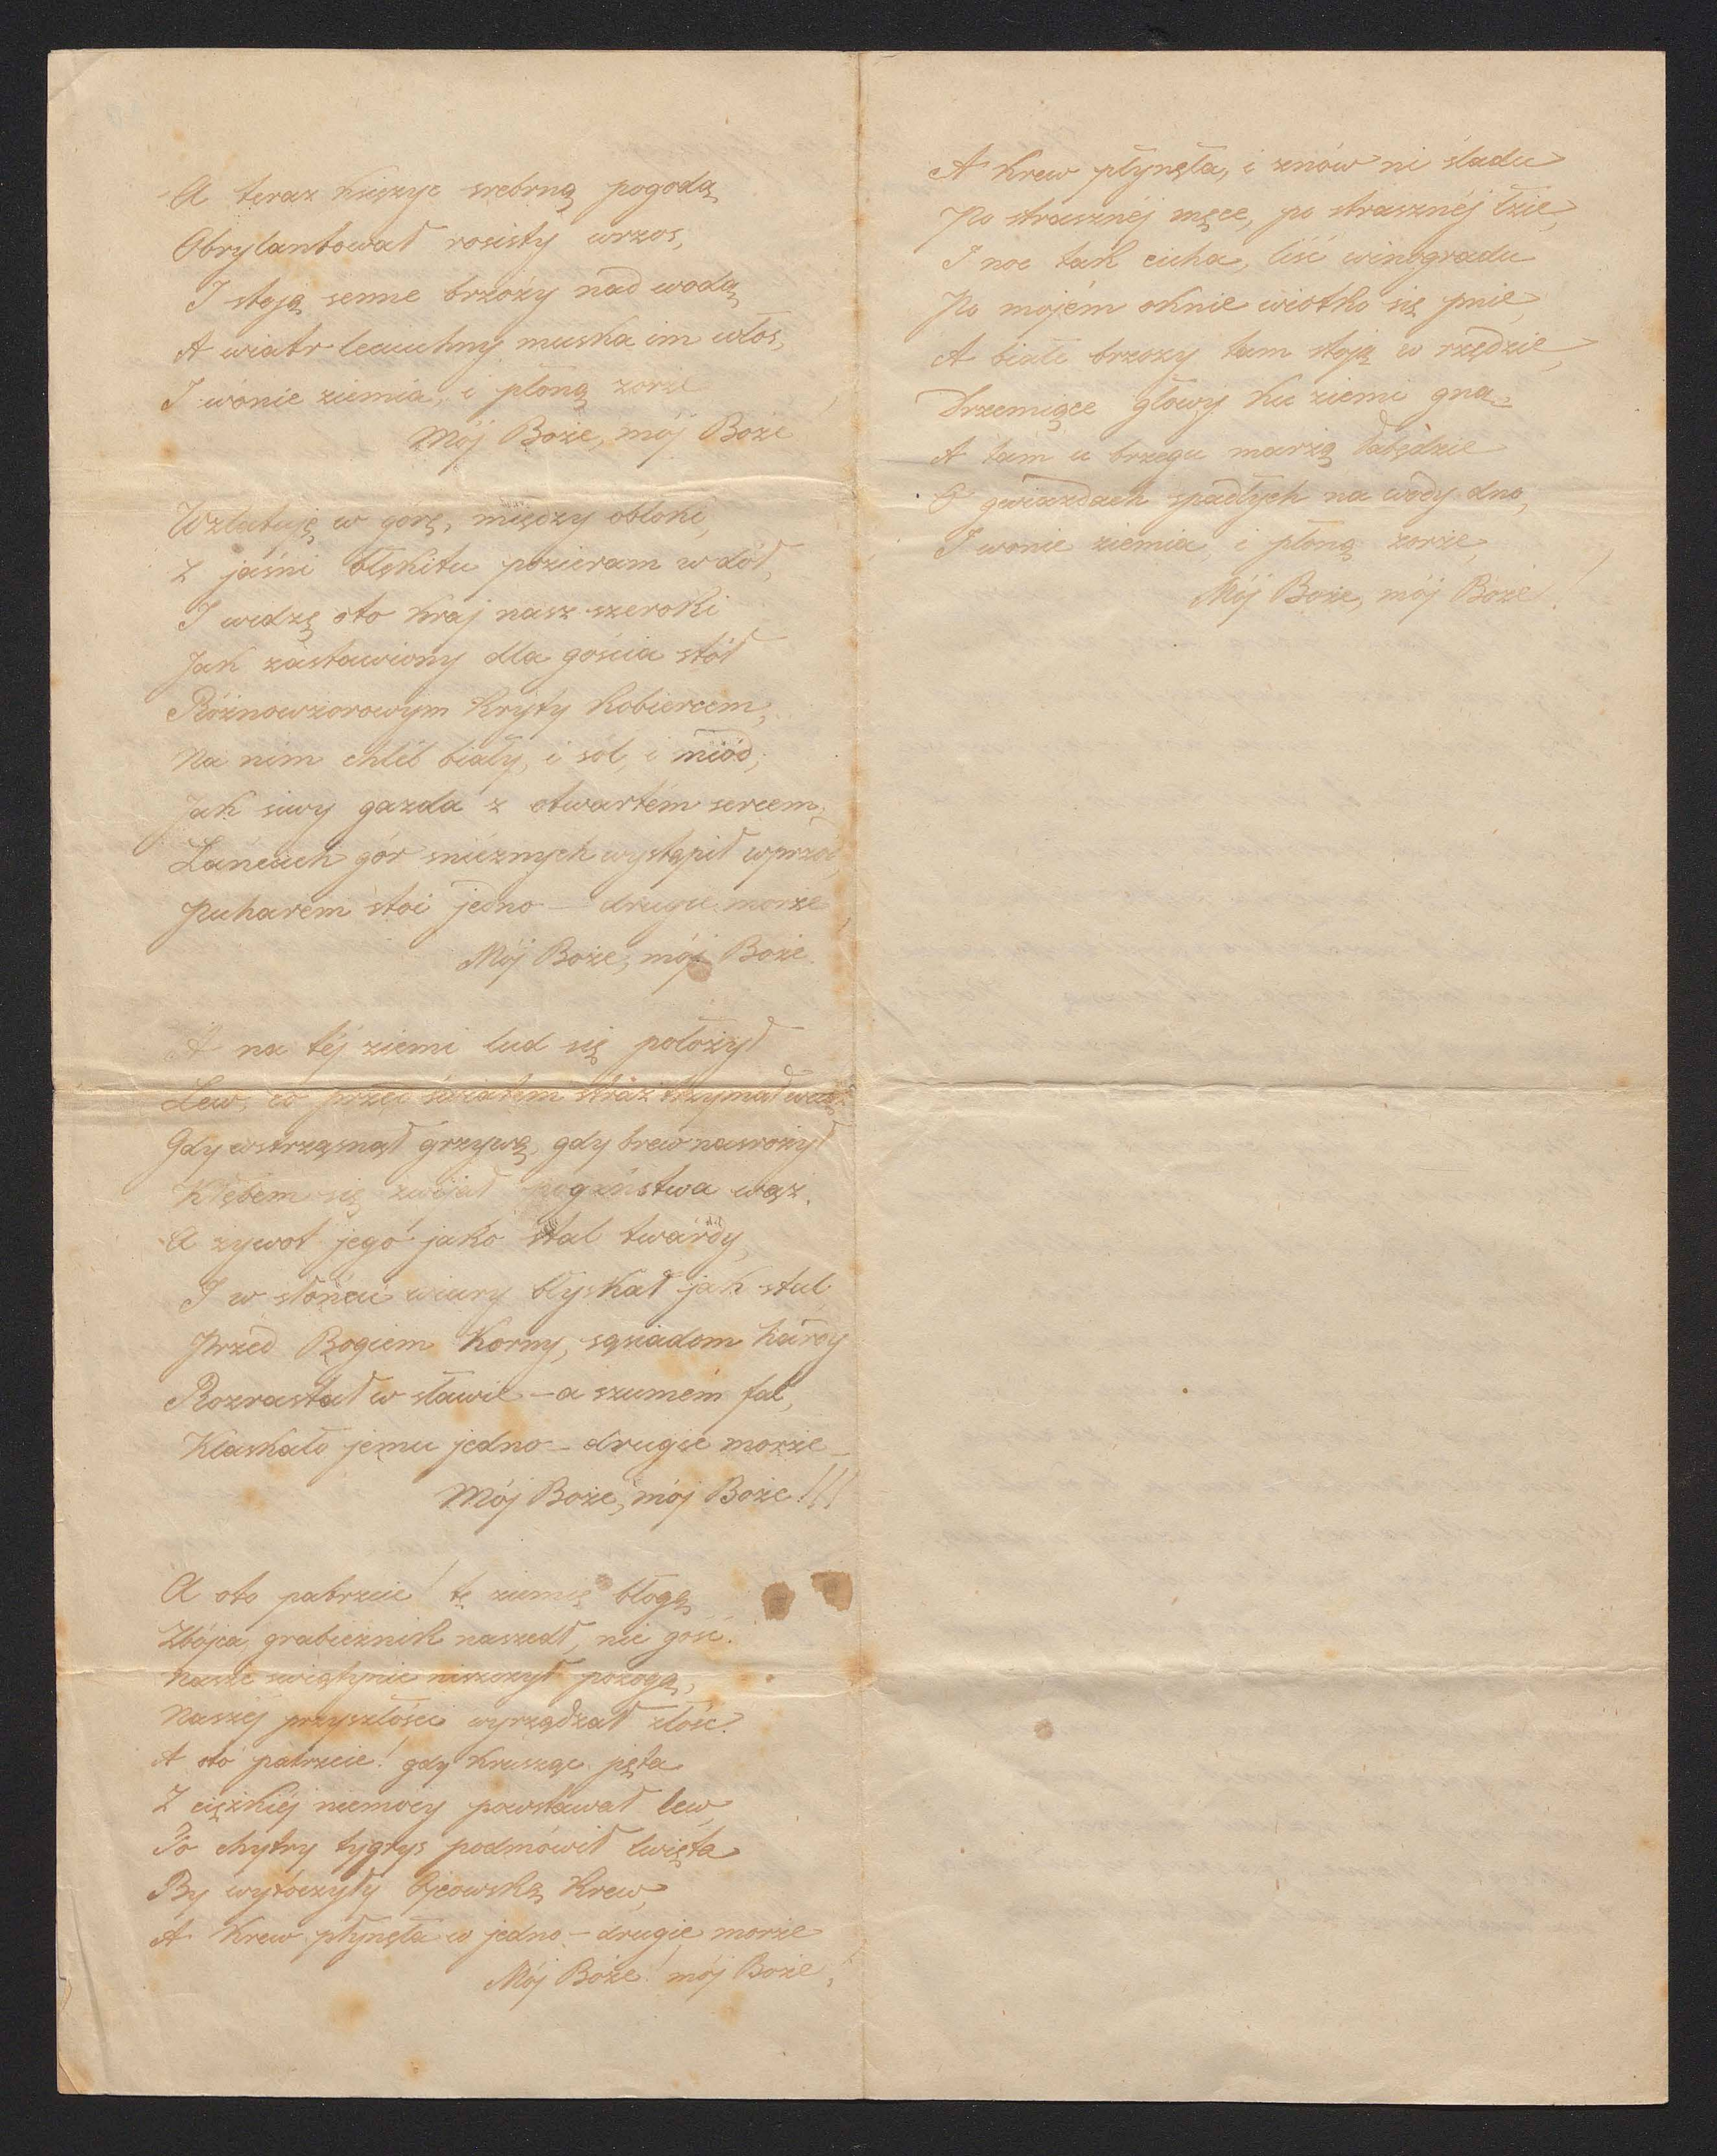 A teraz księżyc srebrną pogodą
Obrylantował rosisty wrzos,
I stoją senne brzózy nad wodą
A wiatr leciuchny muska im włos,
I wonie ziemia, i płoną zorze
Mój Boże, mój Boże
Wzlatuję w górę, między obłoki,
Z jaśni błękitu pozieram w dół,
I widzę oto kraj nasz szeroki
Jak zastawiony dla gościa stół
Różnowzorowym kryty kobiercem,
Na nim chléb biały, i sól, i miód;
Jak siwy gazda z otwartém sercem,
Łańcuch gór śnieżnych wystąpił wprzód,
Puharem stoi jedno – drugie morze
Mój Boże, mój Boże.
A na téj ziemi lud się położył
Lew, co przed światem straż trzymał
Gdy wstrząsnął grzywą, gdy brew nasrożył
Kłębem się zwijał pogaństwa wąż.
A żywot jego jako stal twardy,
I w słońcu wiary błyskał jak stal
Przed Bogiem korny, sąsiadom hardy
Rozrastał w sławie – a szumem fal,
Klaskało jemu jedno – drugie morze –
Mój Boże, mój Boże!!!
A oto patrzcie! tę ziemię błogą
Zbójca grabieżnik naszedł, nie gość.
Nasze świątynie niszczył pożogą,
Naszéj przyszłości wyrządzał złość.
A oto patrzcie! gdy krusząc pęta
Z ciężkiéj niemocy powstawał lew
To chytry tygrys podmówił lwięta
By wytoczyły Ojcowską krew,
A krew płynęła w jedno – drugie morze
Mój Boże! mój Boże!
A krew płynęła, i znów ni śladu
Po strasznéj męce, po strasznéj łzie,
I noc tak cicha, liść winogradu
Po mojém oknie wiotko się pnie,
A białe brzozy tam stoją w rzędzie,
Drzemiące głowy ku ziemi gną
A tam u brzegu marzą łabędzie
O gwiazdach spadłych na wody dno,
I wonie ziemia, i płoną zorze,
Mój Boże, mój Boże!